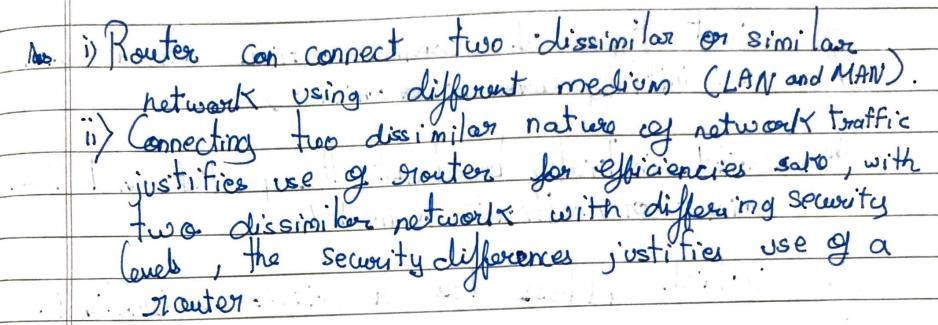 Ans. i) Router can connect two dissimilar or similar
network using different medium (LAN and MAN).
ii) Connecting two dissimilar nature of network traffic
justifies use of router for efficiencies sake, with
two dissimilar network with differing security
levels, the security differences justifies use of a
router.